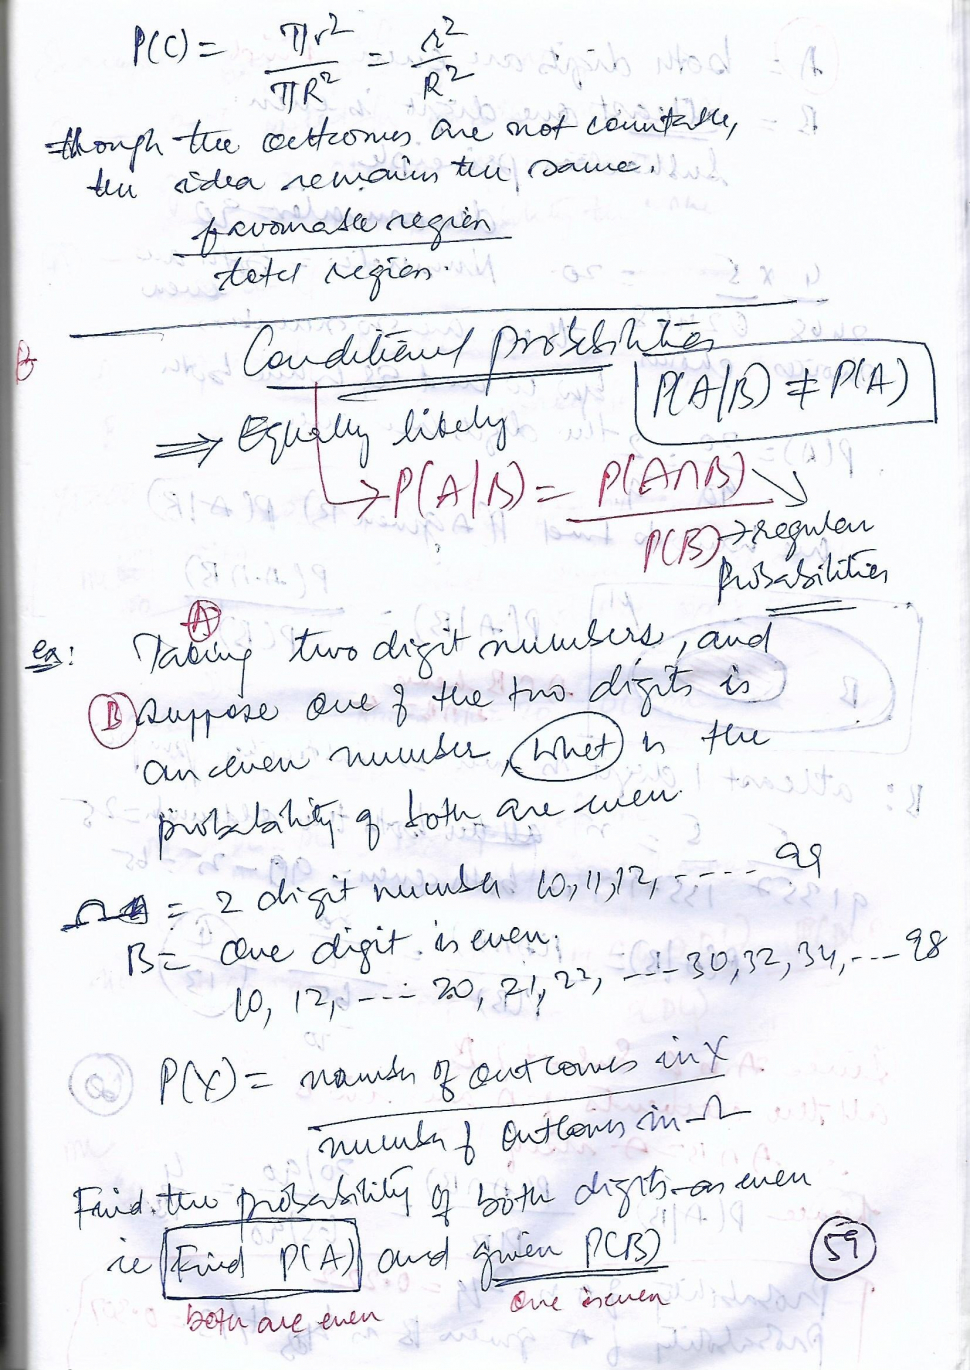 P(C) = πr² / πR² = r² / R²
though the outcomes are not countable,
the idea remains the same.
favourable region
total region.
Conditional probabilities
P(A|B) ≠ P(A)
⇒ Equally likely
→ P(A|B) = P(A∩B) / P(B) → regular
probabilities
A
ex: Taking two digit numbers, and
B suppose one of the two digits is
an even number, what is the
probability of both are even.
Ω = 2 digit number 10, 11, 12, ---- 99
B = One digit is even.
10, 12, --- 20, 21, 22, --- 30, 32, 34, --- 98
P(X) = number of outcomes in X
number of outcomes in Ω
Find the probability of both digits as even
ie Find P(A) and given P(B)
both are even one is even
59